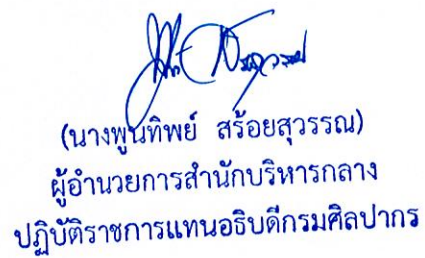 (นางพูนทิพย์ สร้อยสุวรรณ)
ผู้อำนวยการสำนักบริหารกลาง
ปฏิบัติราชการแทนอธิบดีกรมศิลปากร